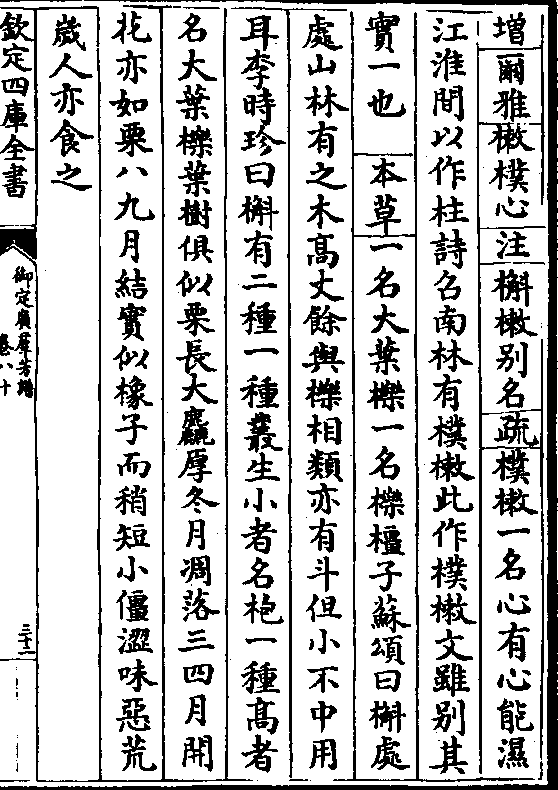 增爾雅樕樸心注槲樕别名疏樸樕一名心有心能濕
江淮間以作柱詩召南林有樸樕此作樸樕文雖别其
實一也　本草一名大葉櫟一名櫟橿子蘇頌曰槲處
處山林有之木髙丈餘與櫟相類亦有斗但小不中用
耳李時珍曰槲有二種一種叢生小者名枹一種髙者
名大葉櫟葉樹俱似栗長大麤厚冬月凋落三四月開
花亦如栗八九月結實似橡子而稍短小僵澀味惡荒
歲人亦食之
欽定四庫全書
御定廣羣芳譜
卷八十
三十二